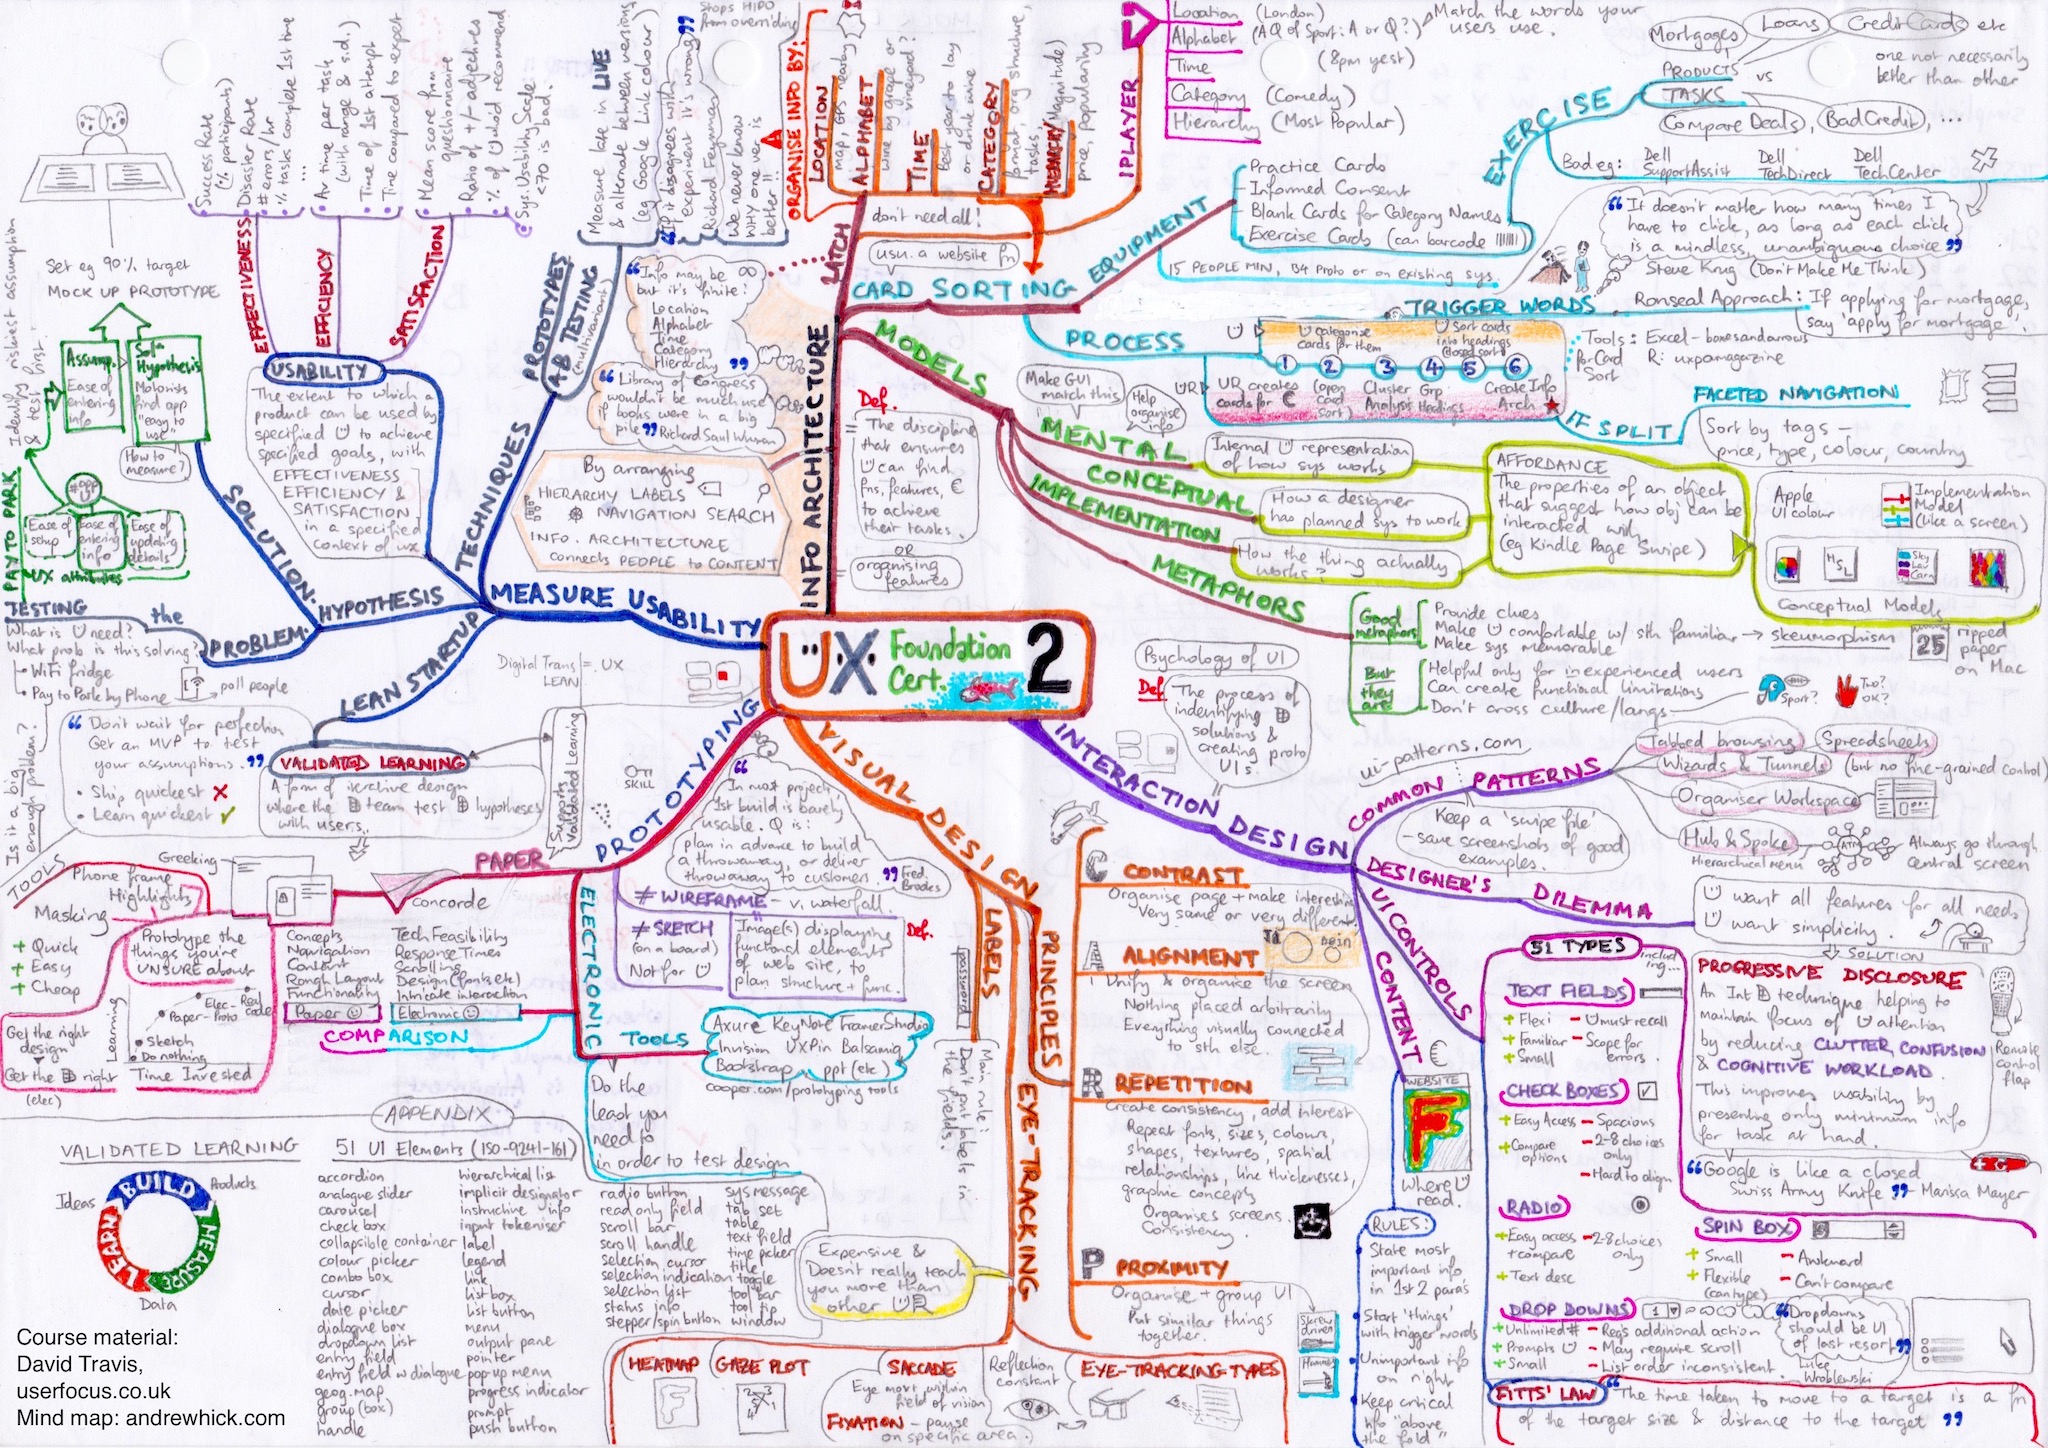 UX Foundation Cert. 2
MEASURE USABILITY
USABILITY
The extent to which a
product can be used by
specified Ü to achieve
specified goals, with
EFFECTIVENESS
EFFICIENCY &
SATISFACTION
in a specified
context of ux
EFFECTIVENESS
Success Rate
(% participants)
Disaster Rate
# errors/hr
% tasks complete 1st time
...
EFFICIENCY
Av time per task
(with range & s.d.)
Time of 1st attempt
Time compared to expert
SATISFACTION
Mean score from
questionnaire
Ratio of +/- adjectives
% of Ü who'd recommend
Sys. Usability Scale
<70 is bad.
TECHNIQUES
PROTOTYPES
AB TESTING
(multivariant)
Measure late in LIVE
& alternate between versions
(eg Google Link colour)
Stops HIPO
from overriding
"If it disagrees with
experiment it's wrong"
Richard Feynman
We never know
WHY one ver. is
better!!
HYPOTHESIS
SOLUTION:
PROBLEM:
TESTING the
What is Ü need?
What prob is this solving?
WiFi fridge
Pay to Park by Phone
poll people
Is it a big
enough problem?
Set eg 90% target
MOCK UP PROTOTYPE
Identify riskiest assumption
& test first
Assump.
Ease of
entering
info
Soln
Hypothesis
Motorists
find app
"easy to
use"
How to
measure?
PAY TO PARK
Ease of
setup
Ease of
entering
info
Ease of
updating
details
UX attributes
LEAN STARTUP
Digital Trans = UX
LEAN
"Don't wait for perfection
Get an MVP to test
your assumptions."
Ship quickest ✗
Learn quickest ✓
VALIDATED LEARNING
A form of iterative design
where the D team test D hypotheses
with users.
Supports
Validated Learning
INFO ARCHITECTURE
LATCH
ORGANISE INFO BY:
LOCATION
map, GPS nearby
ALPHABET
wine by grape or
vineyard?
TIME
Best year to lay
or drink wine
CATEGORY
format, org structure,
tasks,
HIERARCHY (Magnitude)
price, popularity
don't need all!
IPLAYER
Location (London)
Alphabet (AQ of Sport: A or Q?)
Time (8pm yest)
Category (Comedy)
Hierarchy (Most Popular)
Match the words your
users use.
"Info may be ∞
but it's finite:
Location
Alphabet
Time
Category
Hierarchy"
"Library of Congress
wouldn't be much use
if books were in a big
pile" Richard Saul Wurman
By arranging
HIERARCHY LABELS
NAVIGATION SEARCH
INFO. ARCHITECTURE
connects PEOPLE to CONTENT
Def.
= The discipline
that ensures
Ü can find
fns, features, €
to achieve
their tasks.
OR
= organising
features
usu. a website fn
CARD SORTING
EQUIPMENT
Practice Cards
Informed Consent
Blank Cards for Category Names
Exercise Cards (can barcode)
15 PEOPLE MIN, B4 Proto or on existing sys.
EXERCISE
PRODUCTS
Mortgages
Loans
Credit Cards etc
vs
TASKS
Compare Deals, Bad Credit, ...
one not necessarily
better than other
Bad eg:
Dell SupportAssist
Dell TechDirect
Dell TechCenter
TRIGGER WORDS
"It doesn't matter how many times I
have to click, as long as each click
is a mindless, unambiguous choice"
Steve Krug (Don't Make Me Think)
Ronseal Approach: If applying for mortgage,
say 'apply for mortgage'.
PROCESS
Ü categorise
cards for them
Ü sort cards
into headings
(closed sort)
1 2 3 4 5 6
UR creates
cards for €
(open
card
sort)
Cluster
Analysis
Grp
Headings
Create Info
Arch
Tools: Excel - boxesandarrows
for Card
Sort
R: uxpamagazine
IF SPLIT
FACETED NAVIGATION
Sort by tags -
price, type, colour, country
MODELS
Make GUI
match this
Help
organise
info
MENTAL
Internal Ü representation
of how sys works
CONCEPTUAL
How a designer
has planned sys to work
IMPLEMENTATION
How the thing actually
works?
AFFORDANCE
The properties of an object
that suggest how obj can be
interacted with
(eg Kindle Page Swipe)
Apple
UI colour
Implementation
Model
(like a screen)
HSL
Conceptual Models
METAPHORS
Good
metaphors
Provide clues
Make Ü comfortable w/ sth familiar → skeumorphism
Make sys memorable
25
ripped
paper
on Mac
But
they
are
Helpful only for inexperienced users
Can create functional limitations
Don't cross culture/langs
Sport?
Two?
OK?
INTERACTION DESIGN
Psychology of UI
Def. The process of
indentifying D
solutions &
creating proto
UIs.
COMMON PATTERNS
ui-patterns.com
Keep a 'swipe file'
- save screenshots of good
examples.
Tabbed browsing
Spreadsheets
Wizards & Tunnels (but no fine-grained control)
Organiser Workspace
Hub & Spoke
Hierarchical menu
ATM
Always go through
central screen
DESIGNER'S DILEMMA
Ü want all features for all needs
Ü want simplicity.
SOLUTION
PROGRESSIVE DISCLOSURE
An Int D technique helping to
maintain focus of Ü attention
by reducing CLUTTER CONFUSION
& COGNITIVE WORKLOAD.
This improves usability by
presenting only minimum info
for task at hand.
Remote
control
flap
"Google is like a closed
Swiss Army Knife" - Marissa Mayer
UI CONTROLS
51 TYPES
including...
TEXT FIELDS
+ Flexi
+ Familiar
+ Small
- Ü must recall
- Scope for
errors.
CHECK BOXES
+ Easy Access
+ Compare
options
- Spacious
- 2-8 choices
only
- Hard to align
RADIO
+ Easy access
+ compare
+ Text desc
- 2-8 choices
only
SPIN BOX
+ Small
+ Flexible
(can type)
- Awkward
- Can't compare
DROP DOWNS
+ Unlimited #
+ Prompts Ü
+ Small
- Reqs additional action
- May require scroll
- List order inconsistent
"Dropdowns
should be UI
of last resort"
Luke
Wroblewski
FITTS' LAW
"The time taken to move to a target is a fn
of the target size & distance to the target"
CONTENT
WEBSITE
F
Where Ü
read.
RULES:
State most
important info
in 1st 2 para's
Start 'things'
with trigger words
Unimportant info
on right
Keep critical
info "above
the fold"
VISUAL DESIGN
PRINCIPLES
CONTRAST
Organise page + make interesting
Very same or very different
ALIGNMENT
Unify & organise the screen
Nothing placed arbitrarity
Everything visually connected
to sth else.
REPETITION
Create consistency, add interest
Repeat fonts, sizes, colours,
shapes, textures, spatial
relationships, line thicknesses,
graphic concepts
Organises screens.
Consistency.
PROXIMITY
Organise + group UI
Put similar things
together.
LABELS
password
Main rule:
Don't put labels in
the fields.
EYE-TRACKING
Expensive &
Doesn't really teach
you more than
other UR
HEATMAP
GAZE PLOT
SACCADE
Eye movt within
field of vision
FIXATION - pause
on specific area.
Reflection
constant
EYE-TRACKING TYPES
PROTOTYPING
"In most project,
1st build is barely
usable. Q is:
plan in advance to build
a throwaway, or deliver
throwaway to customer." Fred
Brooks
SKILL
≠ WIREFRAME - v. waterfall.
≠ SKETCH
(on a board)
Not for Ü
Image(s) displaying
functional elements
of web site, to
plan structure + func.
Def.
PAPER
concorde
Greeking
TOOLS
Phone frame
Highlights
Masking
+ Quick
+ Easy
+ Cheap
Prototype the
things you're
UNSURE about
Get the right
design
Get the D right
(elec)
Learning
Real
code
Elec-
Paper-Proto
Sketch
Do nothing
Time Invested
Concepts
Navigation
Content
Rough Layout
Functionality
Paper ☺
Tech Feasibility
Response Times
Scrolling
Design (fonts etc)
Intricate interaction
Electronic ☺
COMPARISON
ELECTRONIC
TOOLS
Axure KeyNote
Invision UXPin Balsamiq
Bootstrap ppt (etc)
cooper.com/prototyping tools
Do the
least you
need to
in order to test design
APPENDIX
VALIDATED LEARNING
Ideas
BUILD
Products
MEASURE
Data
LEARN
51 UI Elements (ISO-9241-161)
accordion
analogue slider
carousel
check box
collapsible container
colour picker
combo box
cursor
date picker
dialogue box
dropdown list
entry field
entry field w dialogue
geog. map
group (box)
handle
hierarchical list
implicit designator
instructive info
input tokeniser
label
legend
link
list box
list button
menu
output pane
pointer
pop up menu
progress indicator
prompt
push button
radio button
read only field
scroll bar
scroll handle
selection cursor
selection indication
selection list
status info
stepper/spin button
sys message
tab set
table
text field
time picker
title
toggle
tool bar
tool tip
window
Course material:
David Travis,
userfocus.co.uk
Mind map: andrewhick.com